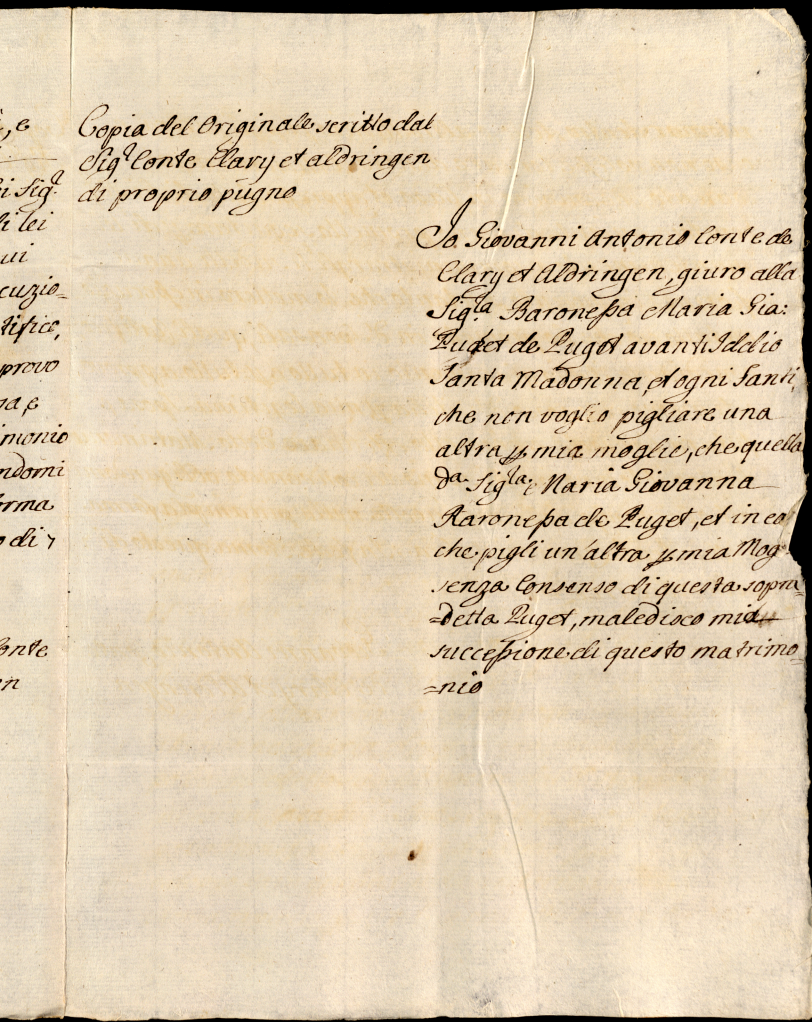 , e
i Sig.r
i lei
ui
cuzio-
tifice,
provo
na e
imonio
ndomi
orma
o di
onte
en
Copia del Originale scritto dal
Sig.r Conte Clary et aldringen
di proprio pugno
Jo. Giovanni Antonio Conte de
Clary et Aldringen, giuro alla
Sig.la Baronessa Maria Gia:
Puget de Puget avanti Iddio
Santa Madonna, et ogni Santi,
che non voglio pigliare una
altra p mia moglie, che quella
da Sig.la Maria Giovanna
Baronessa de Puget, et in ca
che pigli un'altra p mia Mog
senza Consenso di questa sopra-
=detta Puget, maledisco mia
successione di questo matrimo-
=nio